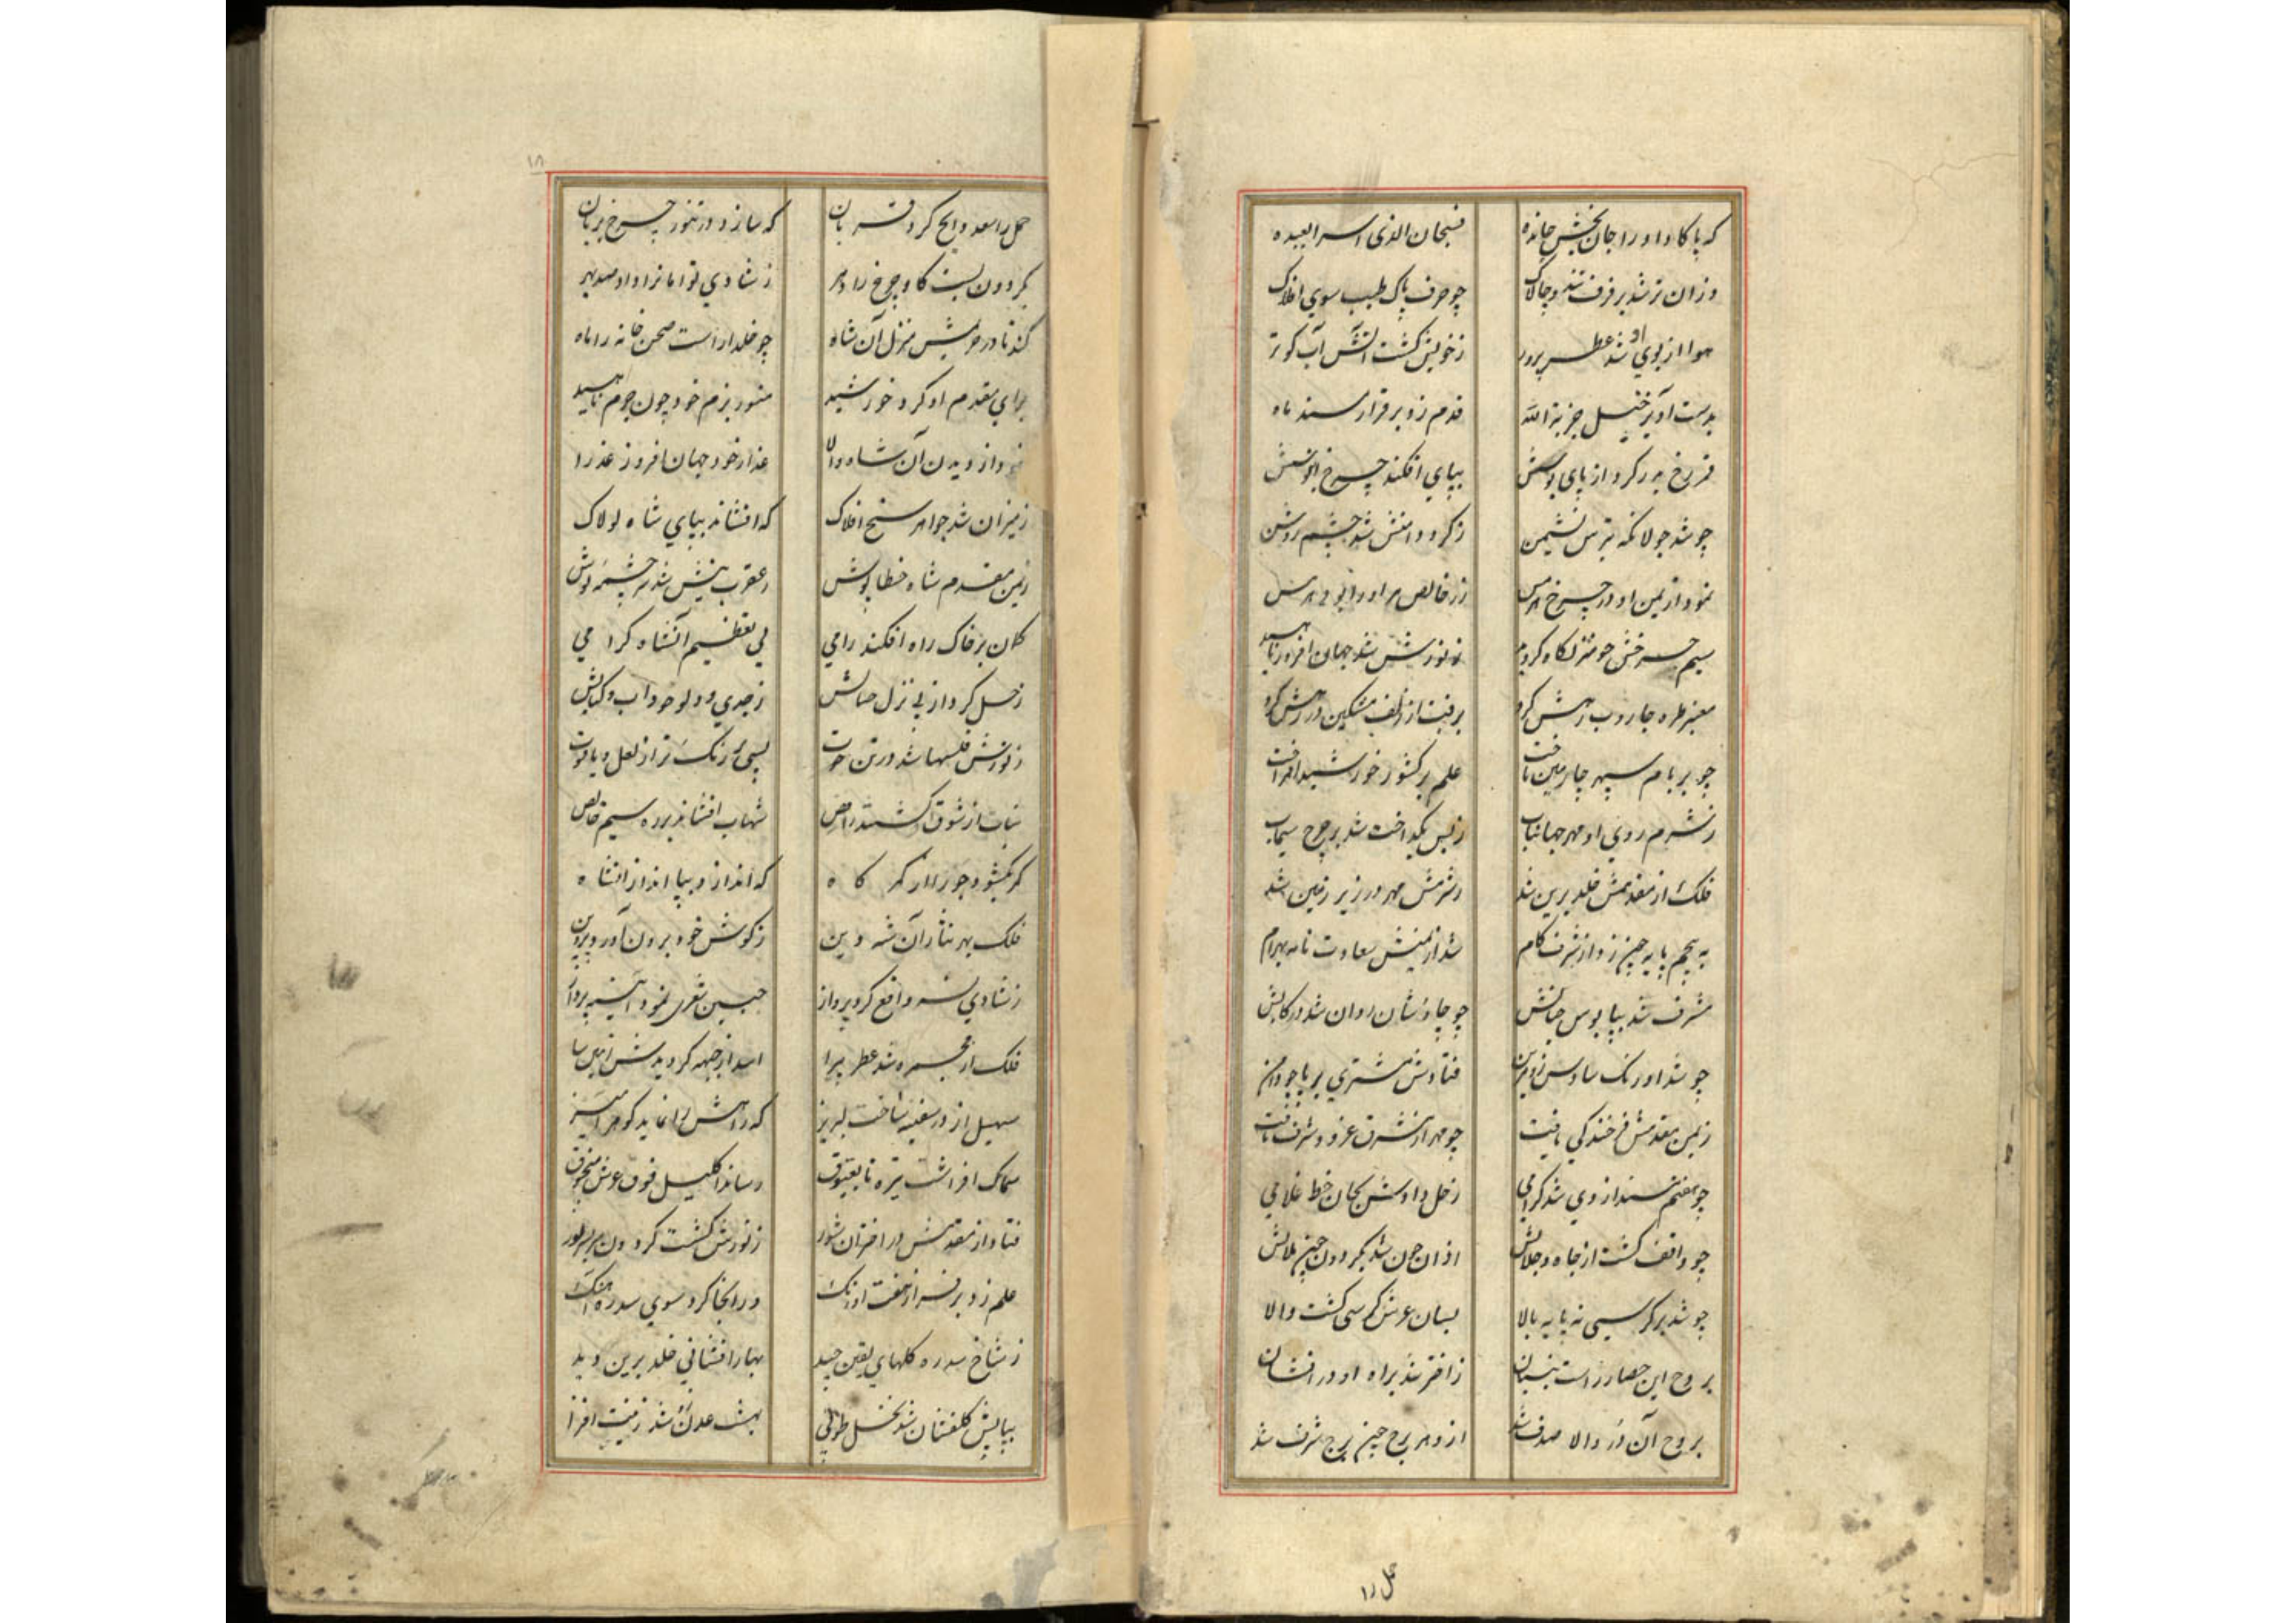 که پاکا داورا جان بخش جانده فسبحان الذی اسرا بعبده
وزان تر شد بر فرف تند و چالاک چو حرف پاک طیب سوی افلاک
هوا از بوی او شد عطر پرور زخویش کشت آتش آب کوثر
بدست آویز خیل جذبة الله قدم زد بر قرار مسند ماه
قمر رخ به رکرد از پای بوسش بپای افکند چرخ
چو شد جولانکه تیرش نشیمن ز کرد دامنش شد چشم روشن
نمود از یمن او در چرخ اطلس زر خالص
سیم چرخش چو منزلکاه کردید ز نورش شد جهان افروز ناهید
معنبر طره جاروب رهش کرد برفت از زلف مشکین در رهش کرد
چو بر بام سپهر چارمین تاخت علم بر کشور خورشید افراخت
ز شرم روی او مهر جهانتاب ز بس بگداخت شد بر چرخ سیماب
فلک از مقدمش خلد برین شد ز شرمش مهر در زیر زمین شد
به پنجم پایه چون زد از شرف کام شد از یمنش سعادت نامه بهرام
مشرف شد بپابوس جنابش چو چاوشان روان شد در رکابش
چو شد اورنک سادس فتادش مشتری بر پا چو دامن
ز یمن مقدمش فرخندکی یافت چو مهر از مشرق عز و شرف تافت
چو هفتم مسند از وی شد کرامی زحل دادش بجان خط غلامی
چو واقف کشت از جاه و جلالش اذان چون شد بکردون چون بلالش
چو شد بر کرسی نه پایه بالا بسان عرش کرسی کشت والا
بروج این حصار راست بنیان ز اختر شد براه او در افشان
بروج آن در والا صدف شد از و هر برج چون برج شرف شد
حمل را
۱۸
حمل را سعد ذابح کرد قربان که سازد در تنور چرخ بریان
بکردون بست کاو چرخ را دهر ز شادی توامانرا داد صد بهر
کند تا در حریمش منزل آن شاه چو خلد آراست صحن خانه را ماه
برای مقدم او کرد خورشید منور بزم خود چون جرم ناهید
نمود از دیدن آن شاه والا عذار خود جهان افروز عذرا
ز میزان شد جواهر سنج افلاک که افشاند بپای شاه لولاک
ز یمن مقدم شاه خطاپوش ز عقرب نیش شد سرچشمه نوش
کمان بر خاک راه افکند رامی پی تعظیم آنشاه کرامی
زحل کرد از پی نزل جنابش ز جدی و دلو خود آب و کبابش
ز نورش فلسها شد در تن حوت بسی رنک تر از لعل و یاقوت
بنات از شوق او کشتند راقص شهاب افشاند بر ره سیم خالص
کمر بکشود جوزا از کمر کاه که اندازد بپا انداز آنشاه
فلک بهر نثار آن شه دین ز کوش خود برون آورد پروین
ز شادی نسر واقع کرد پرواز جبین شعری نمود آیینه پرداز
فلک از مجمره شد عطر پیرا اسد از جبهه کردیدش زمین سا
سهیل از در سفینه ساخت لبریز که راهش را نماید کوهر آمیز
سماک افراشت نیزه تا بعیوق رساند اکلیل فوق عرش منجوق
فتاد از مقدمش در اختران شور ز نورش کشت کردون سربسر نور
علم زد بر فراز هفت اورنک در انجا کرد سوی سدره آهنک
ز شاخ سدره کلهای یقین چید بهار افشانی خلد برین دید
بپایش کلفشان شد نخل طوبی بهشت عدن شد زینت افزا